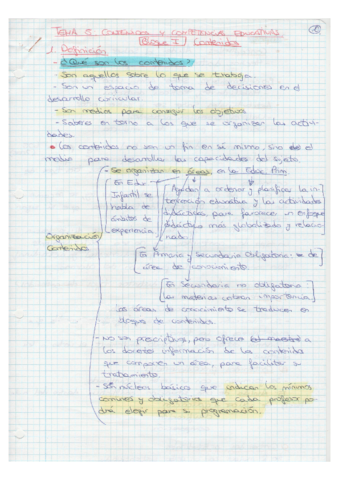 TEMA 5. CONTENIDOS Y COMPETENCIAS EDUCATIVAS
(Bloque I) Contenidos
1. Definición
- ¿Qué son los contenidos?
- Son aquellos sobre lo que se trabaja.
- Son un espacio de toma de decisiones en el
desarrollo curricular
- Son medios para conseguir los objetivos
- Saberes en torno a los que se organizan las activi-
dades.
• Los contenidos no son un fin en sí mismo, sino el
medio para desarrollar las capacidades del sujeto
Organización
Contenidos
- Se organizan en áreas en la Educ. Prim
En Educ.
Infantil se
habla de
ámbitos de
experiencia
Ayudan a ordenar y planificar la in-
tervención educativa y las actividades
didácticas para favorecer un enfoque
didáctico más globalizado y relacio-
nado.
En Primaria y Secundaria Obligatoria se
área de conocimiento.
En Secundaria no obligatoria
las materias cobran importancia
Las áreas de conocimiento se traducen en
bloques de contenidos.
- No son prescriptivos, pero ofrecen
los docentes información de los contenidos
que componen un área, para facilitar su
tratamiento.
- Son núcleos básicos que indican los mínimos
comunes y obligatorios que cada profesor po-
drá elegir para su programación.